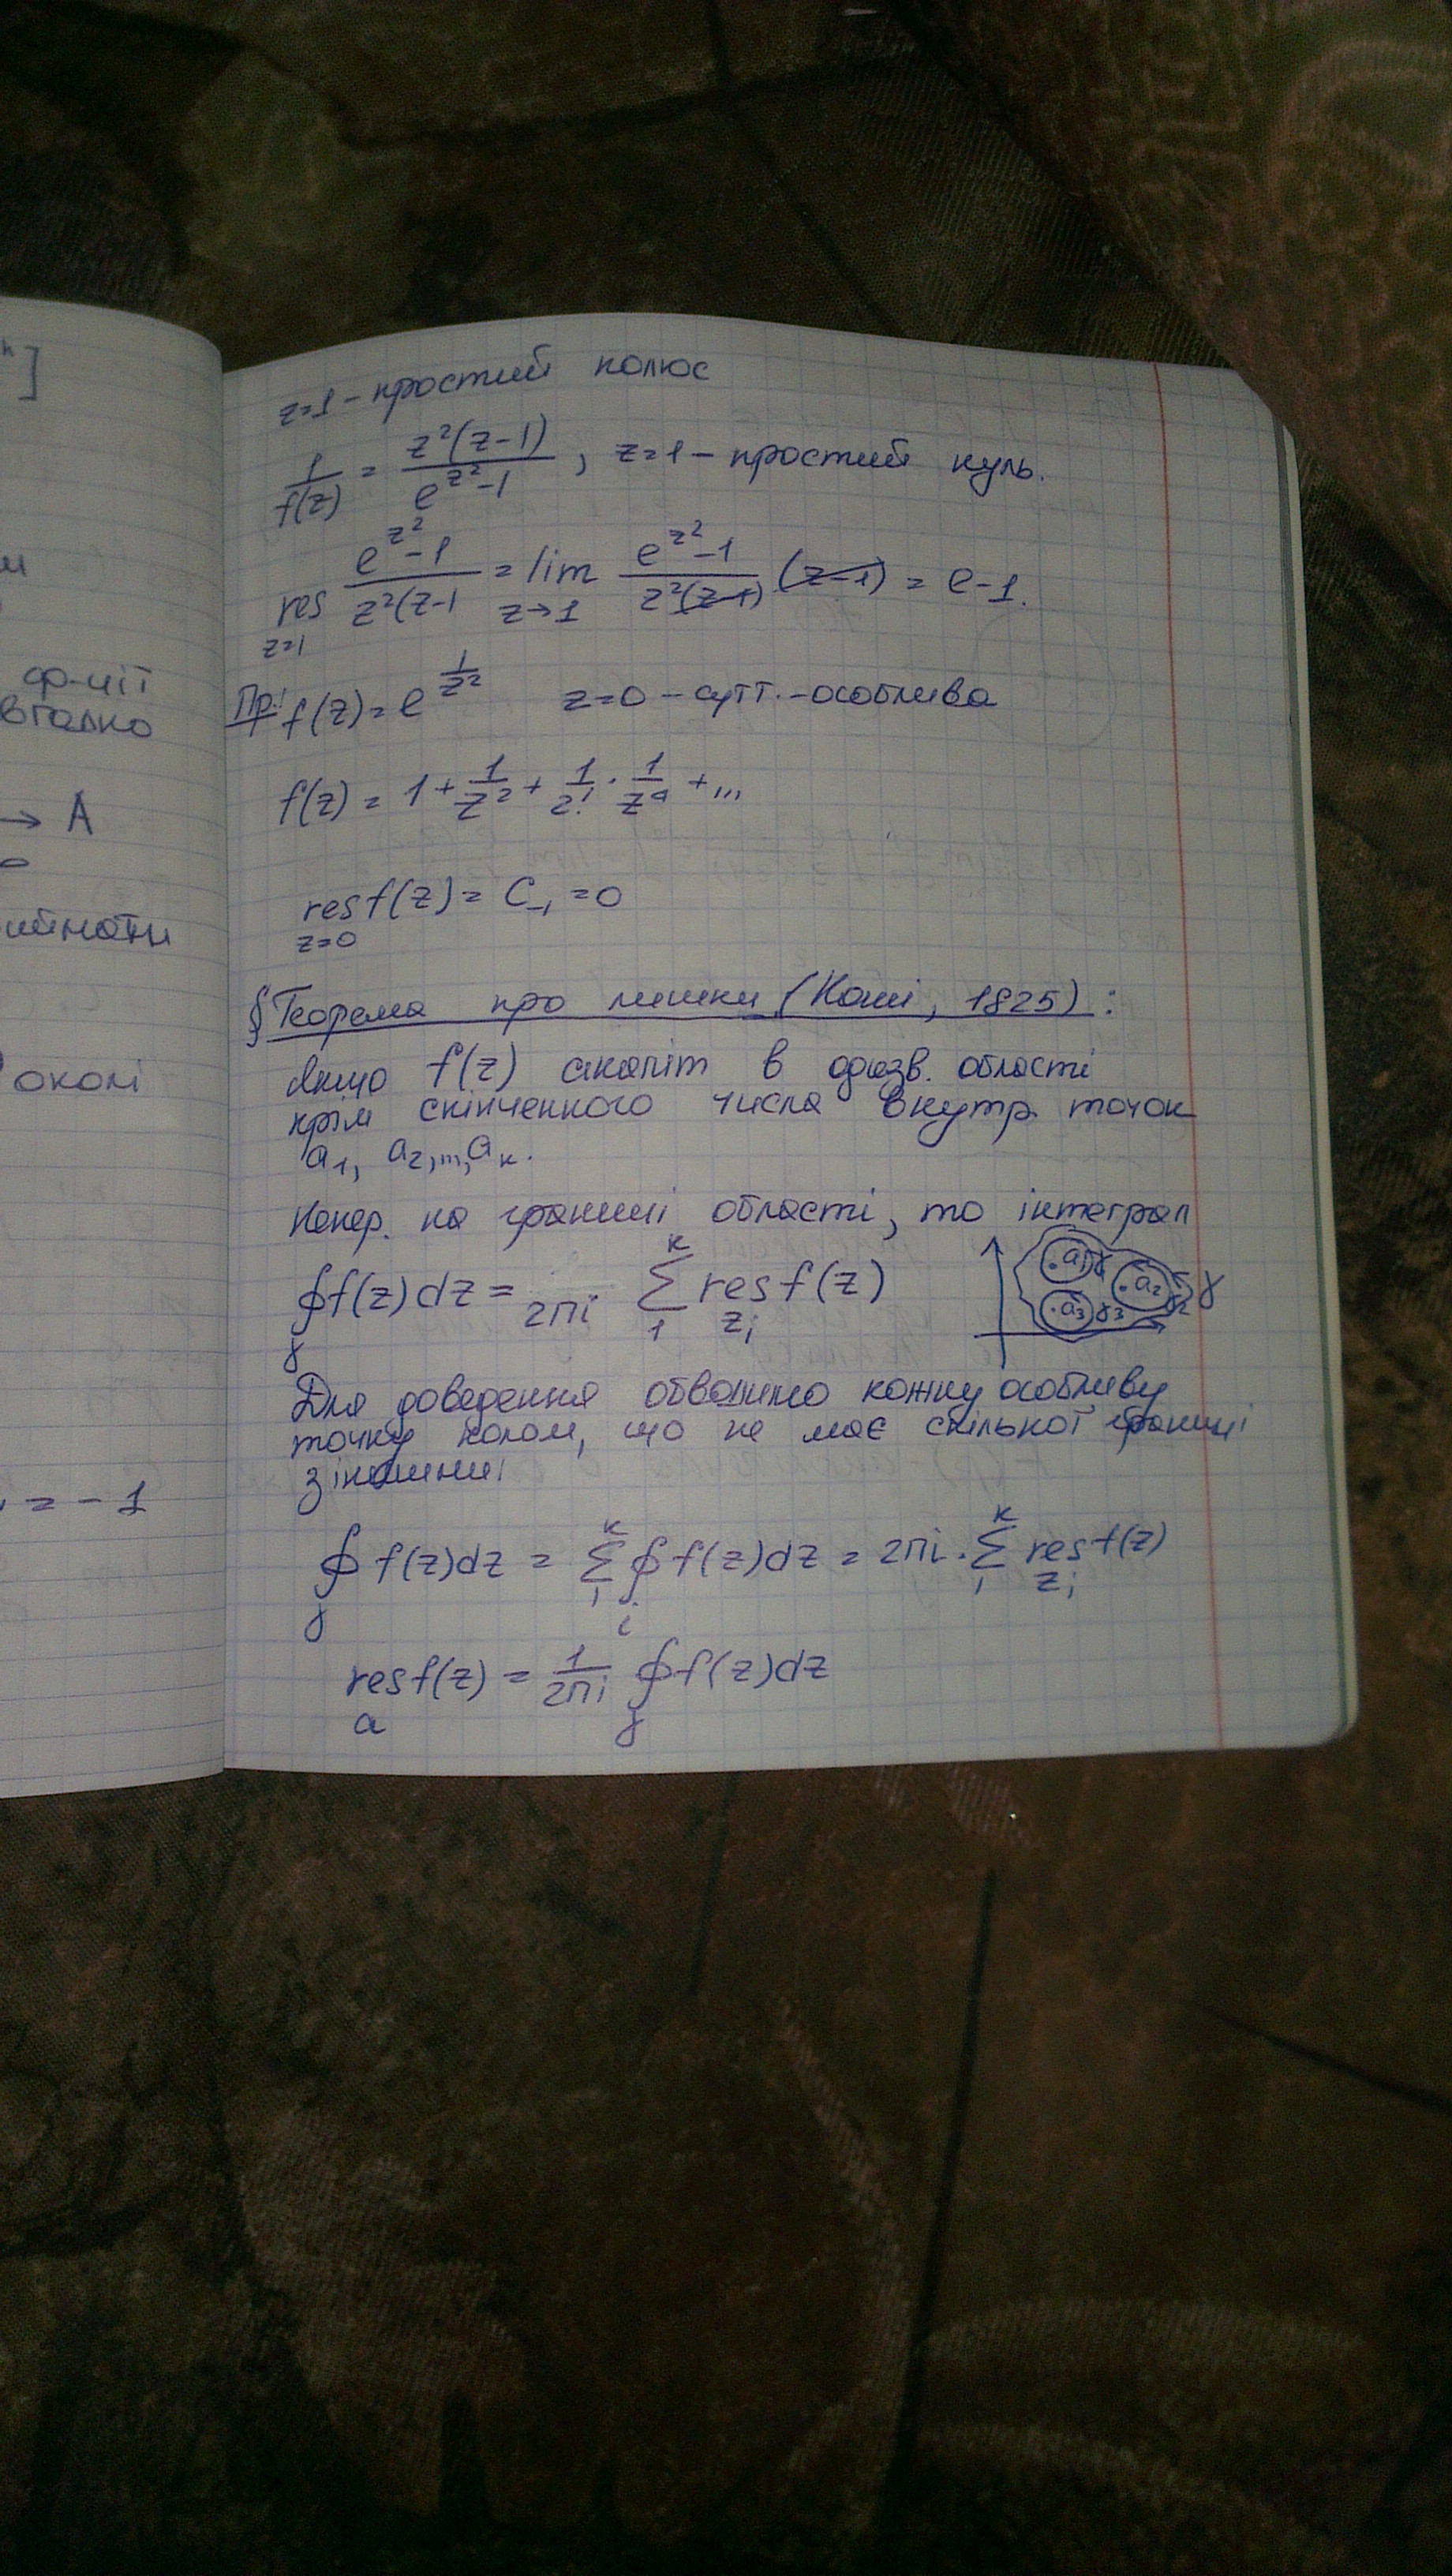 ]
ф-ції
→ A
околі
= - 1
z=1 - простий полюс
1/f(z) = z²(z-1)/e^(z²)-1, z=1 - простий нуль.
res e^(z²)-1/z²(z-1 = lim e^(z²)-1/z²(z-1) (z-1) = e-1.
z=1 z→1
Пр: f(z) = e^(1/z²) z=0 - сутт.-особлива
f(z) = 1 + 1/z² + 1/2! · 1/z⁴ + ...
res f(z) = C₋₁ = 0
z=0
§ Теорема про лишки (Коші, 1825):
Якщо f(z) аналіт в однозв. області
крім скінченного числа внутр. точок
a₁, a₂,...,aₖ.
Непер. на границі області, то інтеграл
∮f(z)dz = 2πi Σ res f(z)
γ 1 k zᵢ
a₁ γ₁ a₂ γ₂ a₃ γ₃ γ
Для доведення обводимо кожну особливу
точку колом, що не має спільної границі
з іншими:
∮ f(z)dz = Σ ∮ f(z)dz = 2πi · Σ res f(z)
γ 1 k i 1 k zᵢ
res f(z) = 1/2πi ∮f(z)dz
a γ